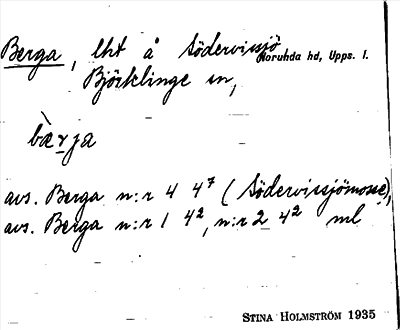 Berga, lht å Södervissjö Noruhda hd, Upps. l.
Björklinge sn,
bæ̀rja
avs. Berga n:r 4 4⁷ (Södervissjömosse),
avs. Berga n:r 1 4², n:r 2 4² ml
STINA HOLMSTRÖM 1935